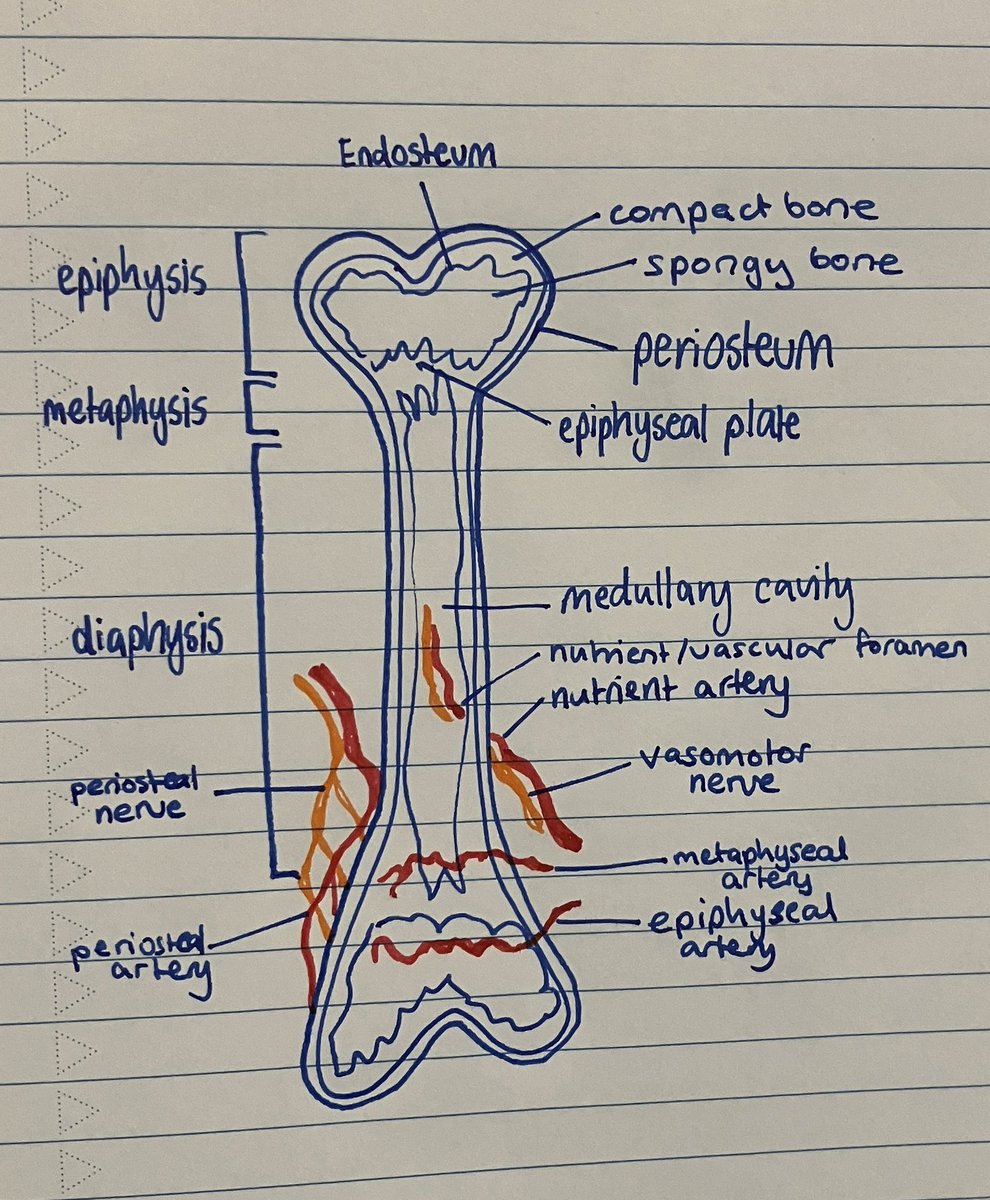 Endosteum
compact bone
spongy bone
epiphysis
periosteum
metaphysis
epiphyseal plate
medullary cavity
diaphysis
nutrient/vascular foramen
nutrient artery
vasomotor
nerve
periosteal
nerve
metaphyseal
artery
epiphyseal
artery
periosteal
artery